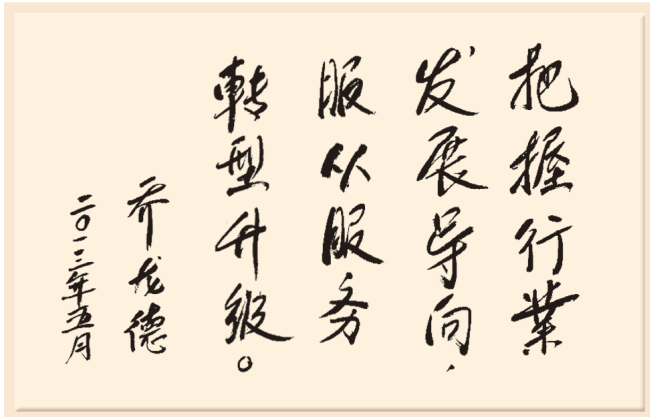 把握行業
发展导向,
服从服务
轉型升级。
乔龙德
二〇一三年五月